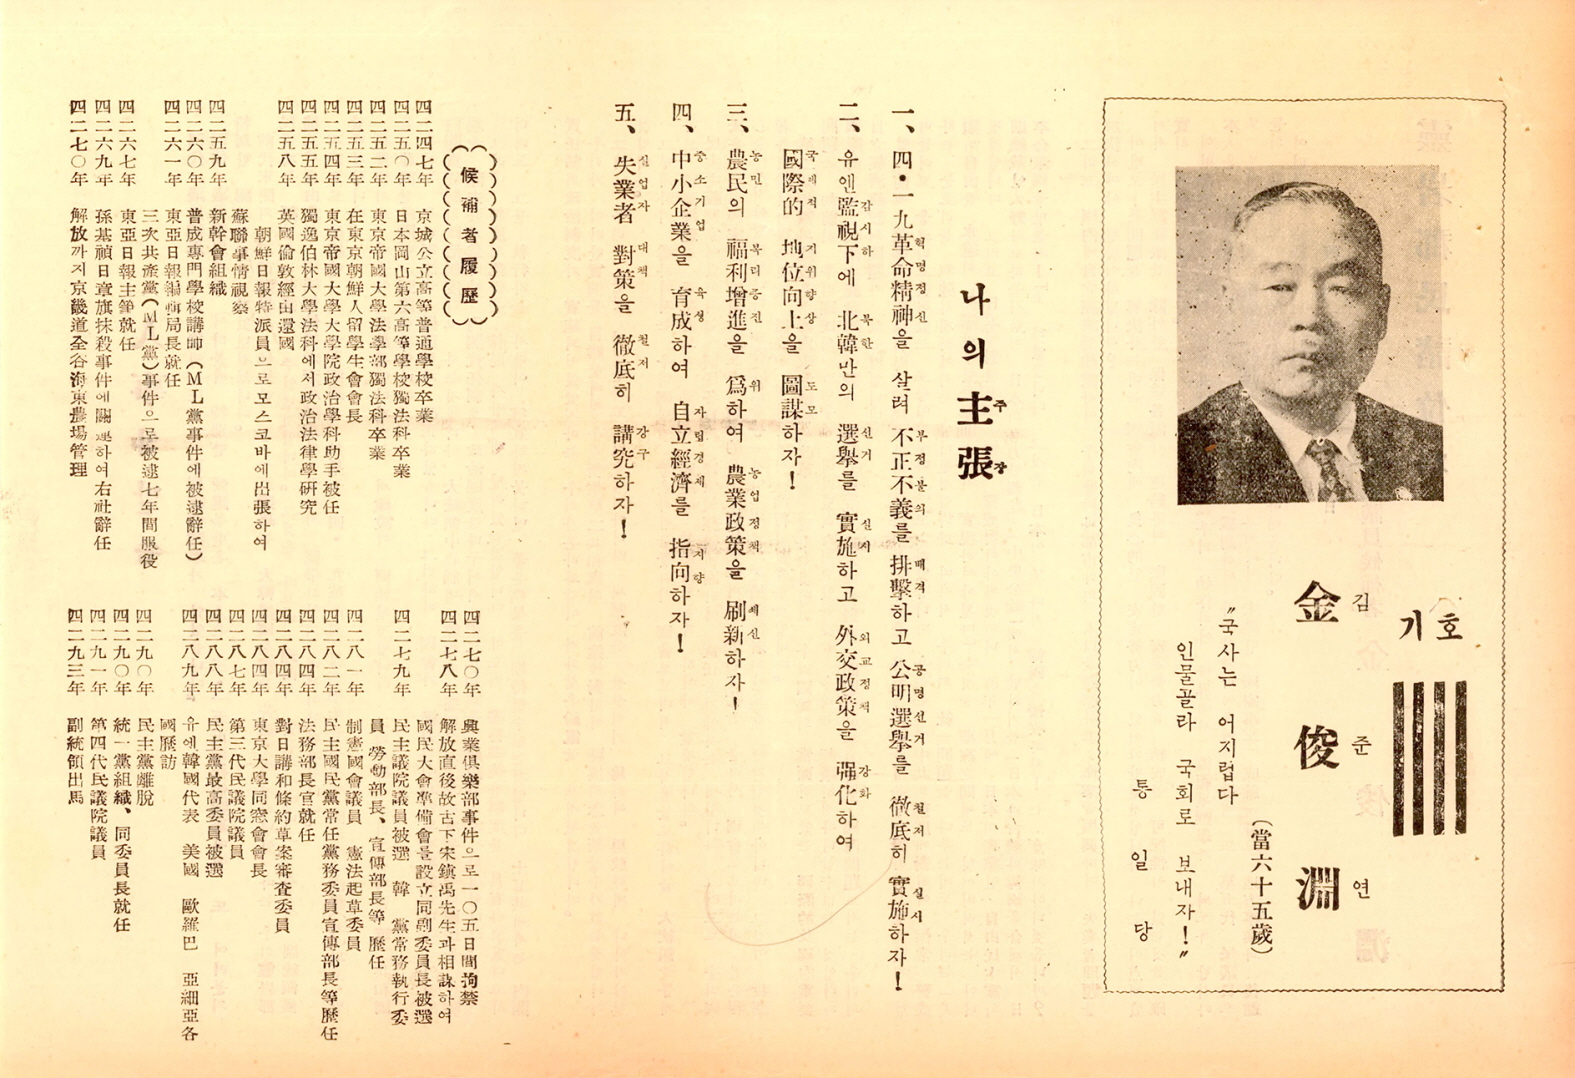 기호
金俊淵
김준연
(當六十五歲)
“국사는 어지럽다
인물골라 국회로 보내자!”
통일당
나의 主張
주장
一、四·一九革命精神을 살려 不正不義를 排擊하고 公明選擧를 徹底히 實施하자!
혁명정신 부정불의 배격 공명선거 철저 실시
二、유엔監視下에 北韓만의 選擧를 實施하고 外交政策을 强化하여
감시하 북한 선거 실시 외교정책 강화
國際的 地位向上을 圖謀하자!
국제적 지위향상 도모
三、農民의 福利增進을 爲하여 農業政策을 刷新하자!
농민 복리증진 위 농업정책 쇄신
四、中小企業을 育成하여 自立經濟를 指向하자!
중소기업 육성 자립경제 지향
五、失業者 對策을 徹底히 講究하자!
실업자 대책 철저 강구
候補者履歷
四二四七年 京城公立高等普通學校卒業
四二五〇年 日本岡山第六高等學校獨法科卒業
四二五二年 東京帝國大學法學部獨法科卒業
四二五三年 在東京朝鮮人留學生會會長
四二五四年 東京帝國大學大學院政治學科助手被任
四二五五年 獨逸伯林大學法科에서政治法律學硏究
四二五八年 英國倫敦經由還國
朝鮮日報特派員으로모스코바에出張하여
蘇聯事情視察
四二五九年 新幹會組織
四二六〇年 普成專門學校講師(ML黨事件에被逮辭任)
四二六一年 東亞日報編輯局長就任
三次共産黨(ML黨)事件으로被逮七年間服役
四二六七年 東亞日報主筆就任
四二六九年 孫基禎日章旗抹殺事件에關連하여右社辭任
四二七〇年 解放까지京畿道全谷海東農場管理
四二七〇年 興業俱樂部事件으로一〇五日間拘禁
四二七八年 解放直後故古下宋鎭禹先生과相議하여
國民大會準備會를設立同副委員長被選
四二七九年 民主議院議員被選 韓 黨常務執行委
員 勞動部長、宣傳部長等 歷任
四二八一年 制憲國會議員 憲法起草委員
四二八二年 民主國民黨常任黨務委員宣傳部長等歷任
四二八四年 法務部長官就任
四二八四年 對日講和條約草案審査委員
四二八七年 東京大學同窓會會長
四二八七年 第三代民議院議員
四二八八年 民主黨最高委員被選
四二八九年 유엔韓國代表 美國 歐羅巴 亞細亞各
國歷訪
四二九〇年 民主黨離脫
四二九〇年 統一黨組織、同委員長就任
四二九一年 第四代民議院議員
四二九三年 副統領出馬